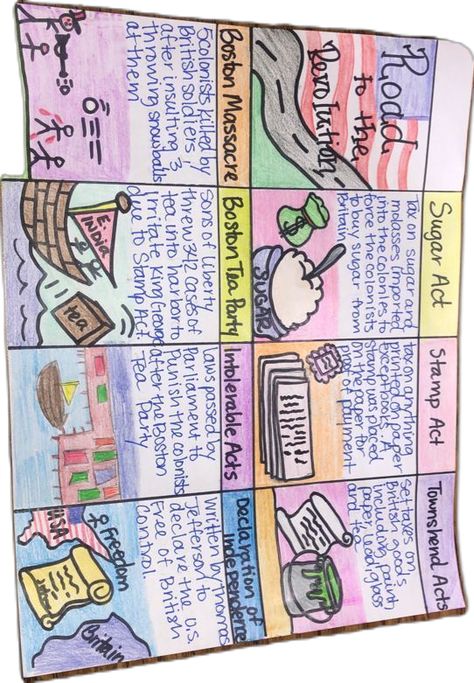 Road
to the
Revolution
Sugar Act
Tax on sugar and
molasses imported
into the colonies to
force the colonists
to buy sugar from
Britain
$
SUGAR
Stamp Act
Tax on anything
printed on paper
except books. A
stamp was placed
on the paper for
of
Townshend Acts
Set taxes on
British goods
including paint,
paper, lead, glass
and tea
Boston Massacre
5 colonists killed by
British soldiers
after insulting &
throwing snowballs
at them
Boston Tea Party
Sons of Liberty
threw 342 cases of
tea into harbor to
irritate King George
due to Stamp Act
E.
INDIA
tea
Intolerable Acts
Laws passed by
Parliament to
Punish the colonists
after the Boston
Tea Party
Declaration of
Independence
Written by Thomas
Jefferson to
declare the U.S.
Free of British
Control.
USA
Freedom
Britain